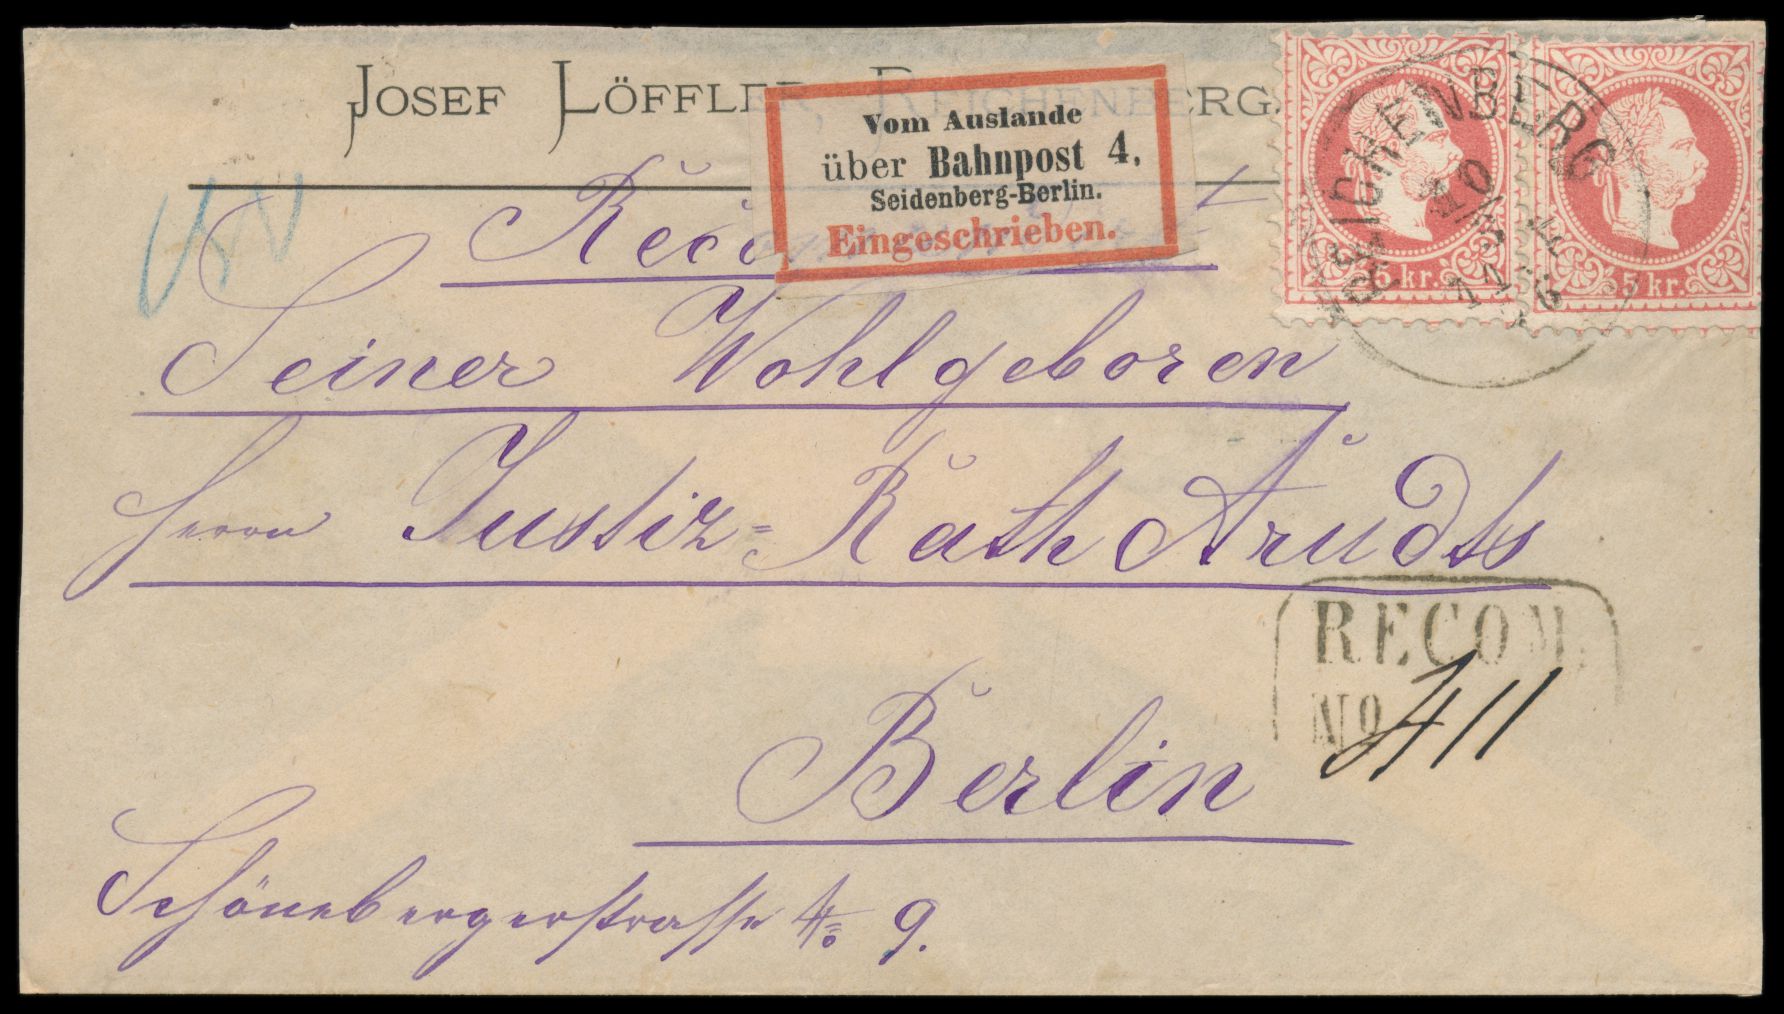 JOSEF LÖFFLER, REICHENBERG.
Vom Auslande
über Bahnpost 4.
Seidenberg-Berlin.
Eingeschrieben.
REICHENBERG
5 kr.
5 kr.
Seiner Wohlgeboren
Herrn Justiz-Rath Arndts
RECOM.
No 411
Berlin
Schönebergerstrasse No 9.